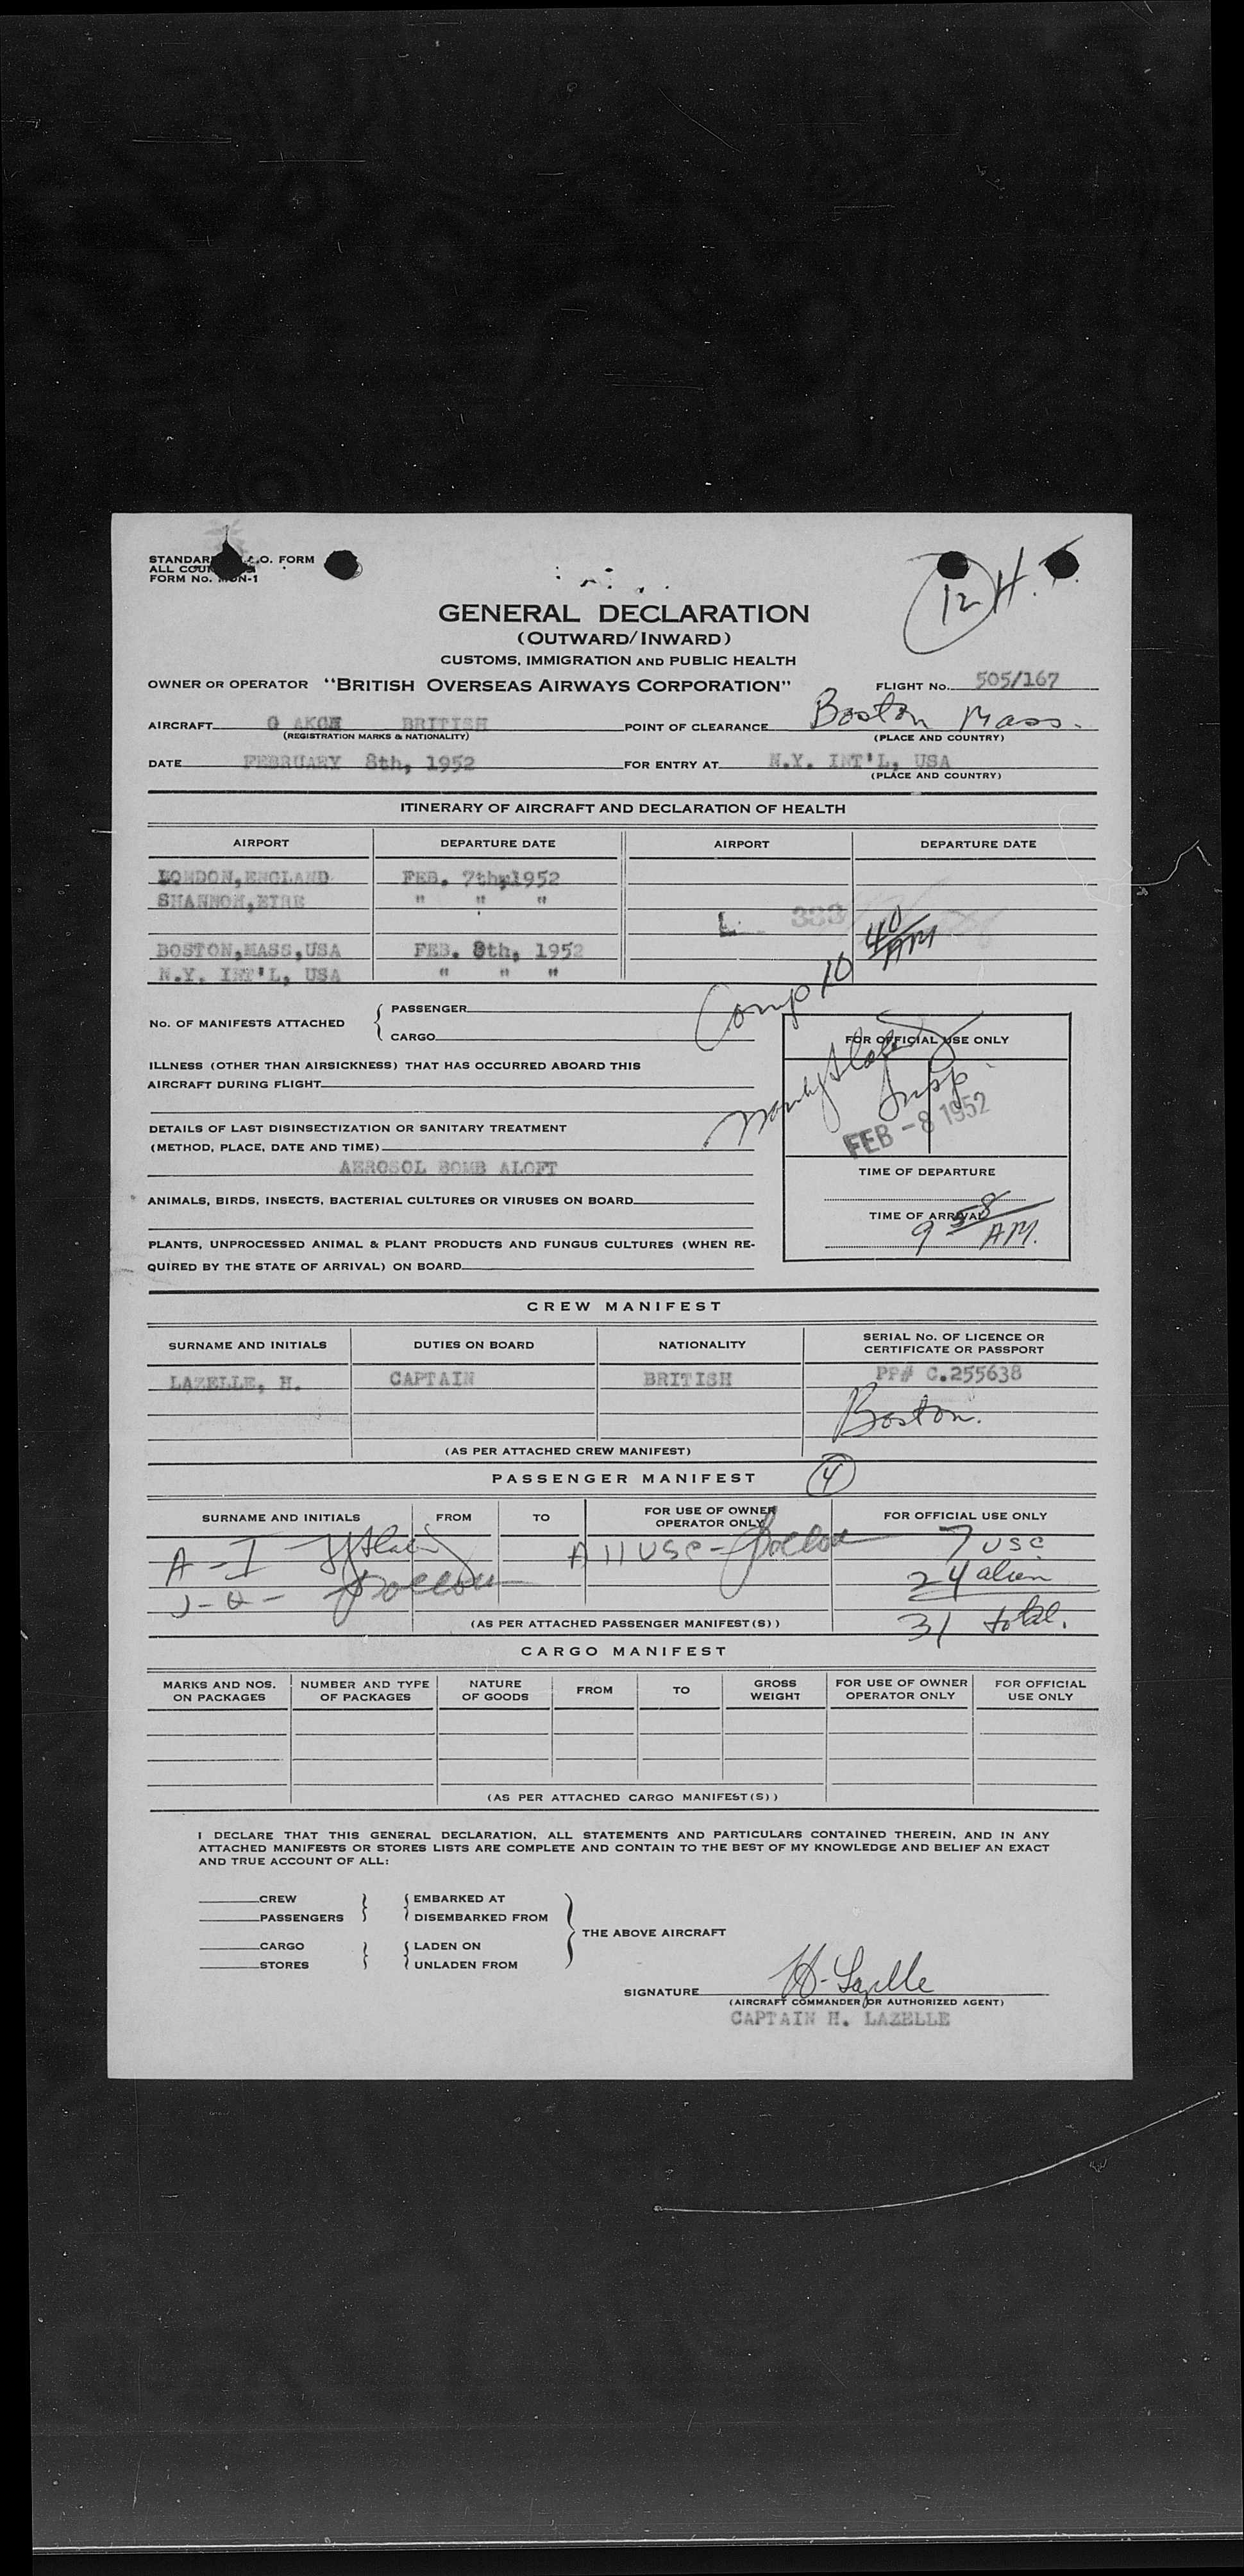 STANDARD O. FORM
ALL COU
FORM No. N-1
12 H.
GENERAL DECLARATION
(OUTWARD/INWARD)
CUSTOMS, IMMIGRATION AND PUBLIC HEALTH
OWNER OR OPERATOR "BRITISH OVERSEAS AIRWAYS CORPORATION" FLIGHT No. 505/167
AIRCRAFT G BRITISH POINT OF CLEARANCE Boston Mass.
(REGISTRATION MARKS & NATIONALITY) (PLACE AND COUNTRY)
DATE FEBRUARY 8th, 1952 FOR ENTRY AT N.Y. INT'L, USA
(PLACE AND COUNTRY)
ITINERARY OF AIRCRAFT AND DECLARATION OF HEALTH
AIRPORT DEPARTURE DATE AIRPORT DEPARTURE DATE
LONDON, ENGLAND FEB. 7th, 1952
SHANNON, EIRE " " "
L 333
BOSTON, MASS, USA FEB. 8th, 1952
N.Y. INT'L, USA " " "
Comp 10 40 AM
No. OF MANIFESTS ATTACHED { PASSENGER
CARGO
FOR OFFICIAL USE ONLY
Insp.
FEB - 8 1952
ILLNESS (OTHER THAN AIRSICKNESS) THAT HAS OCCURRED ABOARD THIS
AIRCRAFT DURING FLIGHT
DETAILS OF LAST DISINSECTIZATION OR SANITARY TREATMENT
(METHOD, PLACE, DATE AND TIME)
AEROSOL BOMB ALOFT
TIME OF DEPARTURE
ANIMALS, BIRDS, INSECTS, BACTERIAL CULTURES OR VIRUSES ON BOARD
TIME OF ARRIVAL
9 58 AM.
PLANTS, UNPROCESSED ANIMAL & PLANT PRODUCTS AND FUNGUS CULTURES (WHEN RE-
QUIRED BY THE STATE OF ARRIVAL) ON BOARD
CREW MANIFEST
SURNAME AND INITIALS DUTIES ON BOARD NATIONALITY SERIAL No. OF LICENCE OR
CERTIFICATE OR PASSPORT
LAZELLE, H. CAPTAIN BRITISH PP# C.255638
Boston.
(AS PER ATTACHED CREW MANIFEST)
PASSENGER MANIFEST 4
SURNAME AND INITIALS FROM TO FOR USE OF OWNER
OPERATOR ONLY FOR OFFICIAL USE ONLY
A - I All USC - 7 USC
24 alien
(AS PER ATTACHED PASSENGER MANIFEST(S)) 31 total.
CARGO MANIFEST
MARKS AND NOS.
ON PACKAGES NUMBER AND TYPE
OF PACKAGES NATURE
OF GOODS FROM TO GROSS
WEIGHT FOR USE OF OWNER
OPERATOR ONLY FOR OFFICIAL
USE ONLY
(AS PER ATTACHED CARGO MANIFEST(S))
I DECLARE THAT THIS GENERAL DECLARATION, ALL STATEMENTS AND PARTICULARS CONTAINED THEREIN, AND IN ANY
ATTACHED MANIFESTS OR STORES LISTS ARE COMPLETE AND CONTAIN TO THE BEST OF MY KNOWLEDGE AND BELIEF AN EXACT
AND TRUE ACCOUNT OF ALL:
CREW } { EMBARKED AT
PASSENGERS DISEMBARKED FROM
THE ABOVE AIRCRAFT
CARGO } { LADEN ON
STORES UNLADEN FROM
SIGNATURE H. Lazelle
(AIRCRAFT COMMANDER OR AUTHORIZED AGENT)
CAPTAIN H. LAZELLE